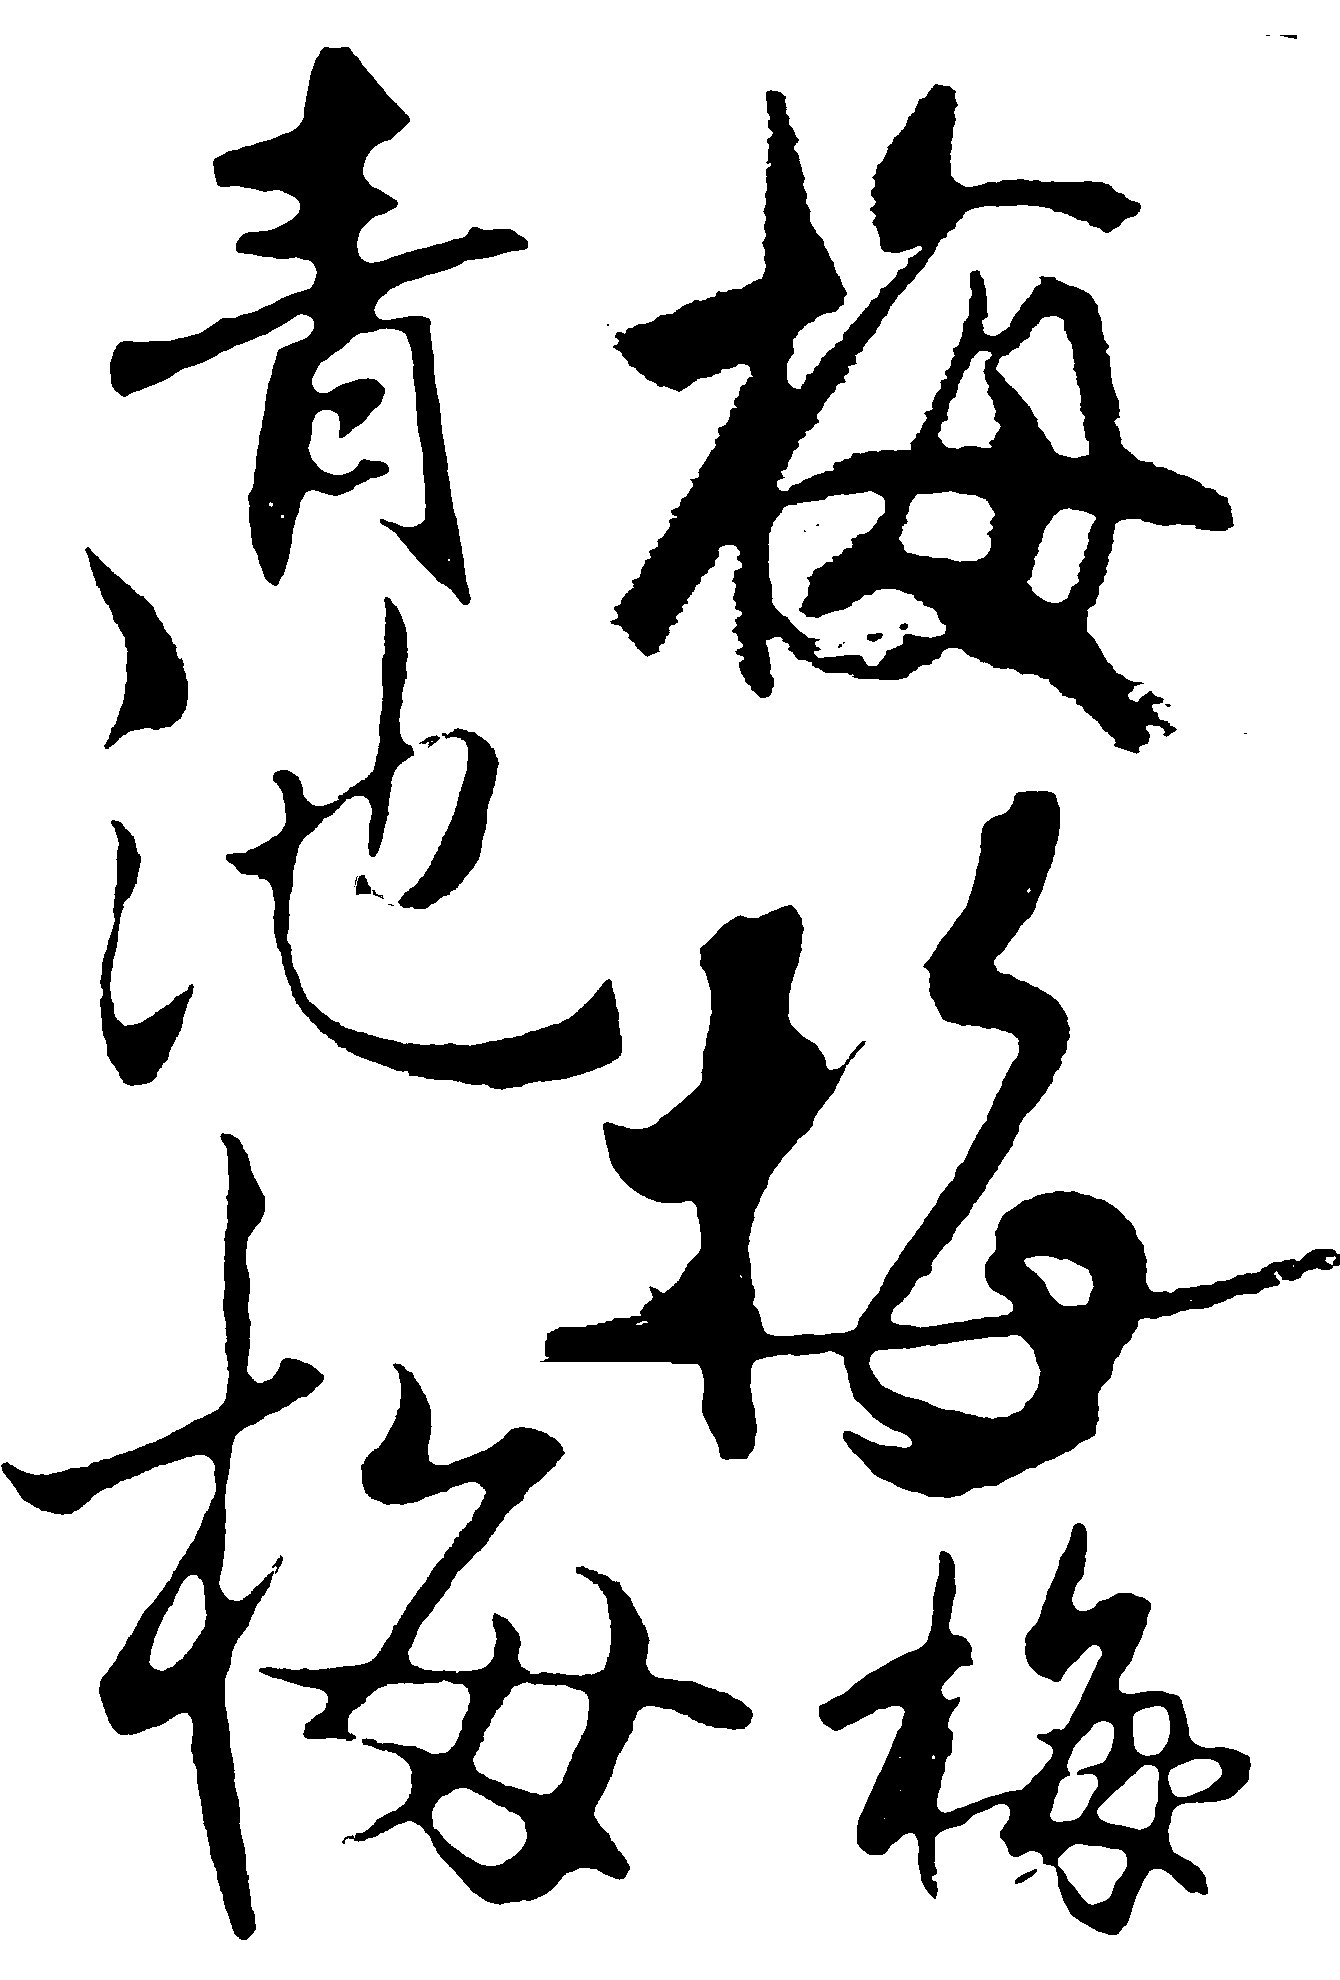 梅梅梅
青池梅